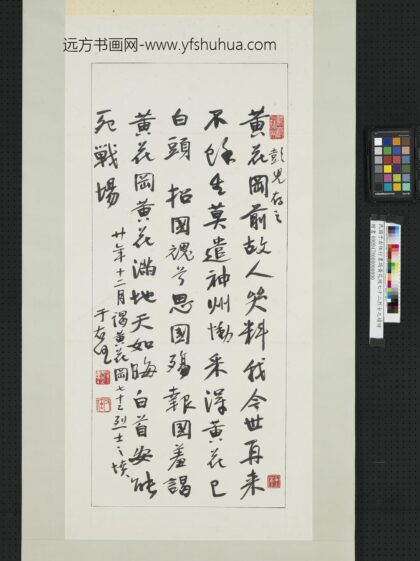 远方书画网-www.yfshuhua.com
彭兄存之
黄花岡前故人笑料我今世再来
不莫遣神州恸采得黄花已
白頭招國魂兮思國殤報國羞謁
黄花岡黄花滿地天如晦白首安能
死戰場
廿年十二月謁黄花岡七十二烈士之墳
于右任